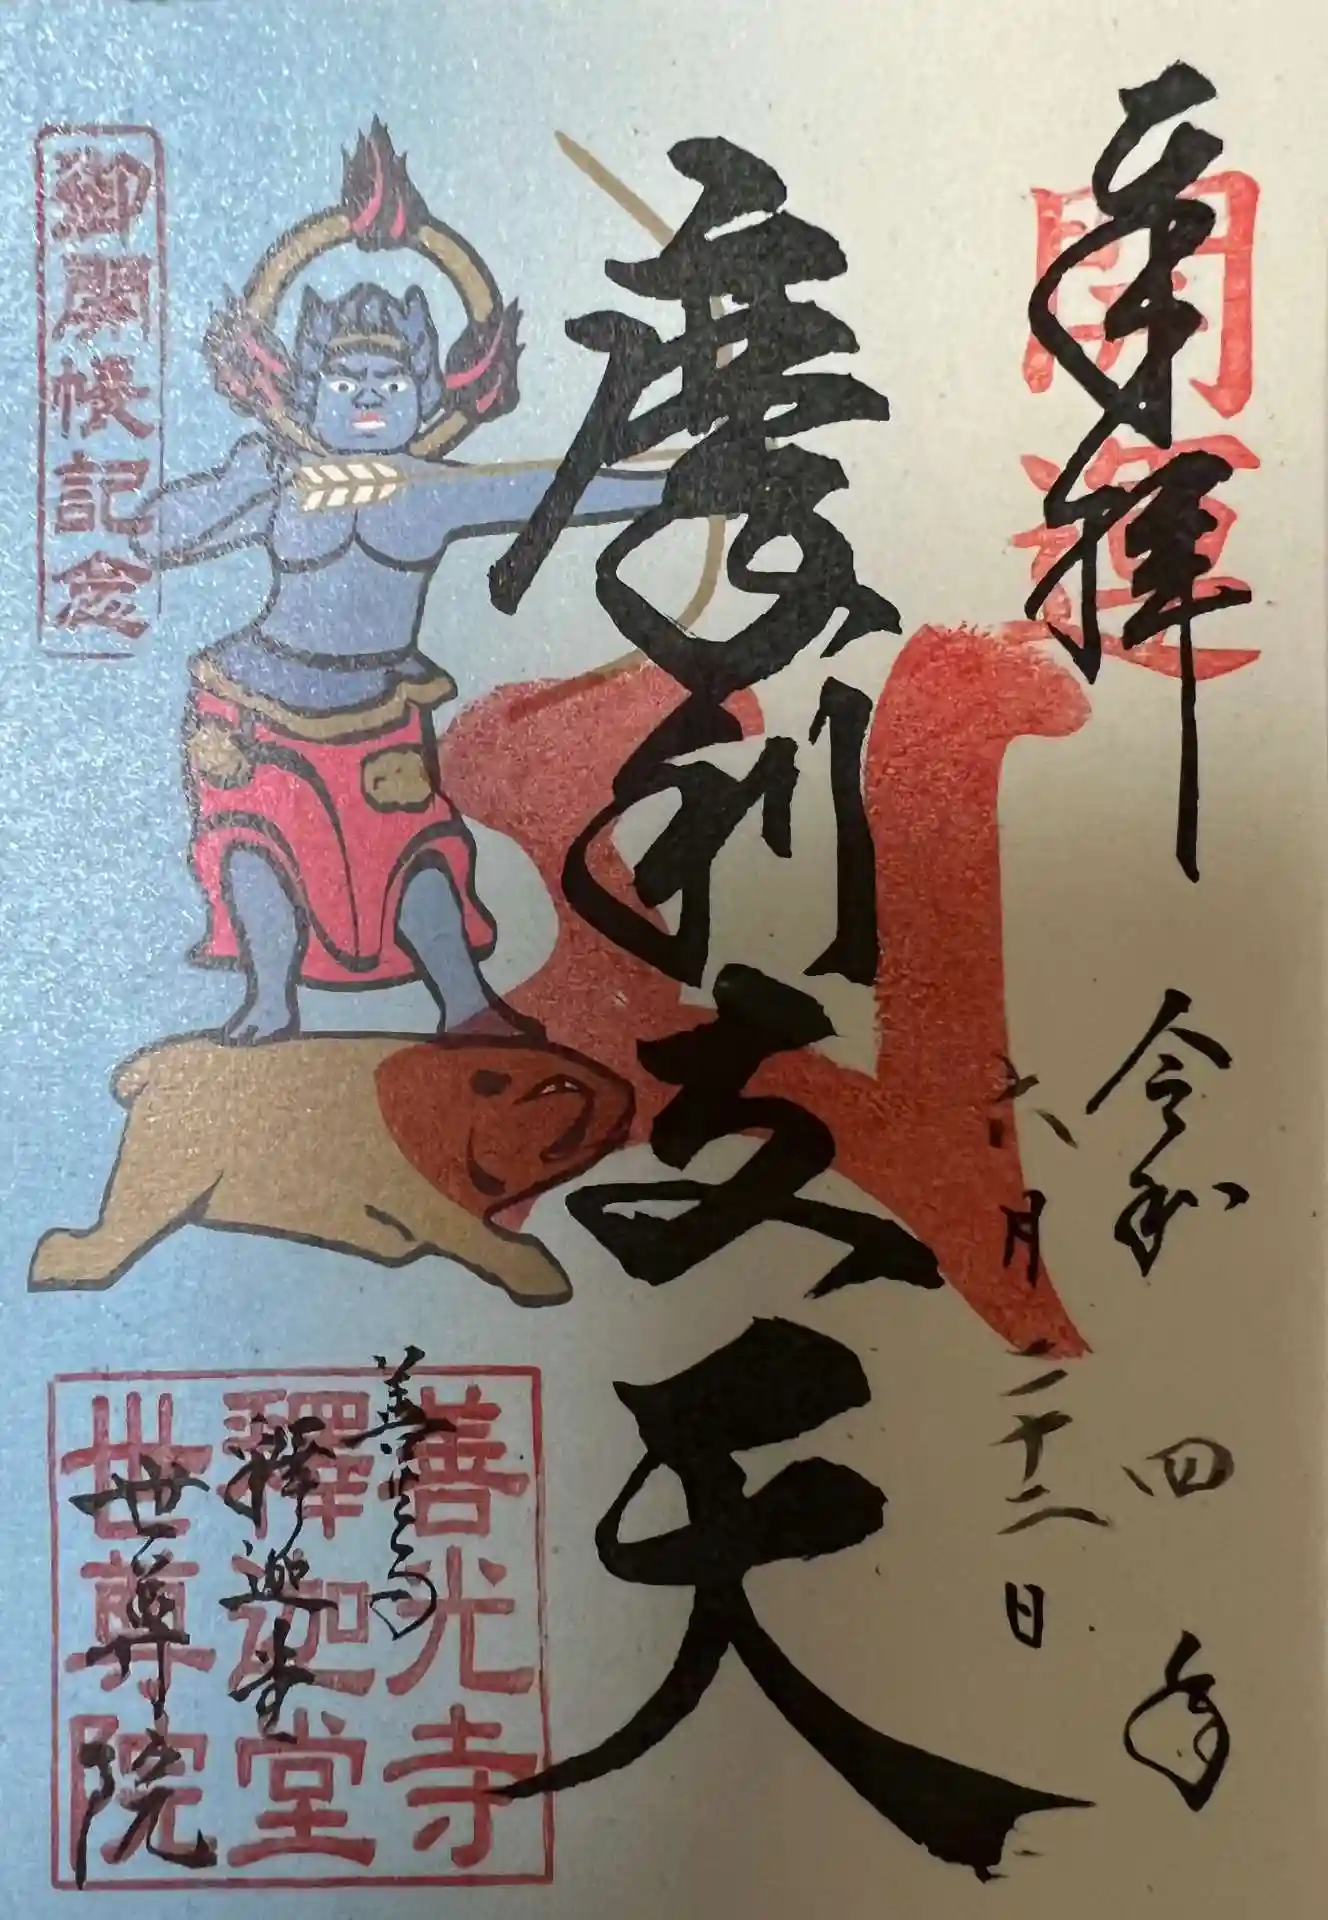 奉拝
開運
令和四年
六月二十二日
摩利支天
御開帳記念
善光寺
釋迦堂
世尊院
善光寺
釋迦堂
世尊院